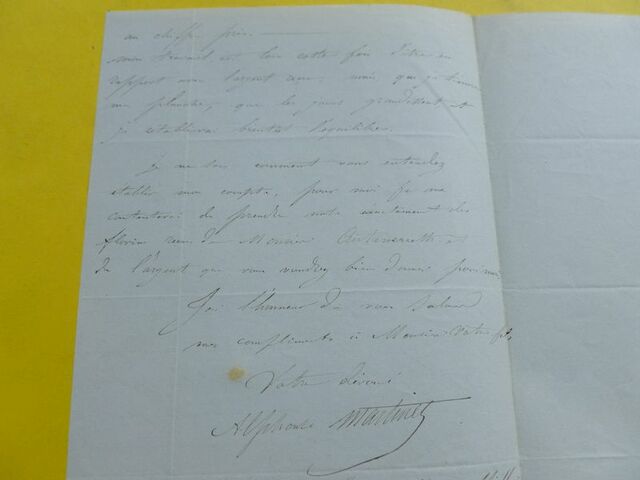 au chiffre près.
mon travail est loin cette fois d'être en
rapport avec l'argent reçu, mais que je
ma planche, que les jours grandissent et
je rétablirai bientôt l'équilibre.
je ne sais comment vous entendez
établir mon compte, pour moi je me
contenterai de prendre note exactement des
florins reçus de Monsieur et
de l'argent que vous voudrez bien donner pour moi
J'ai l'honneur de vous saluer
mes compliments à Monsieur Votre fils
Votre dévoué
Alphonse Martinet